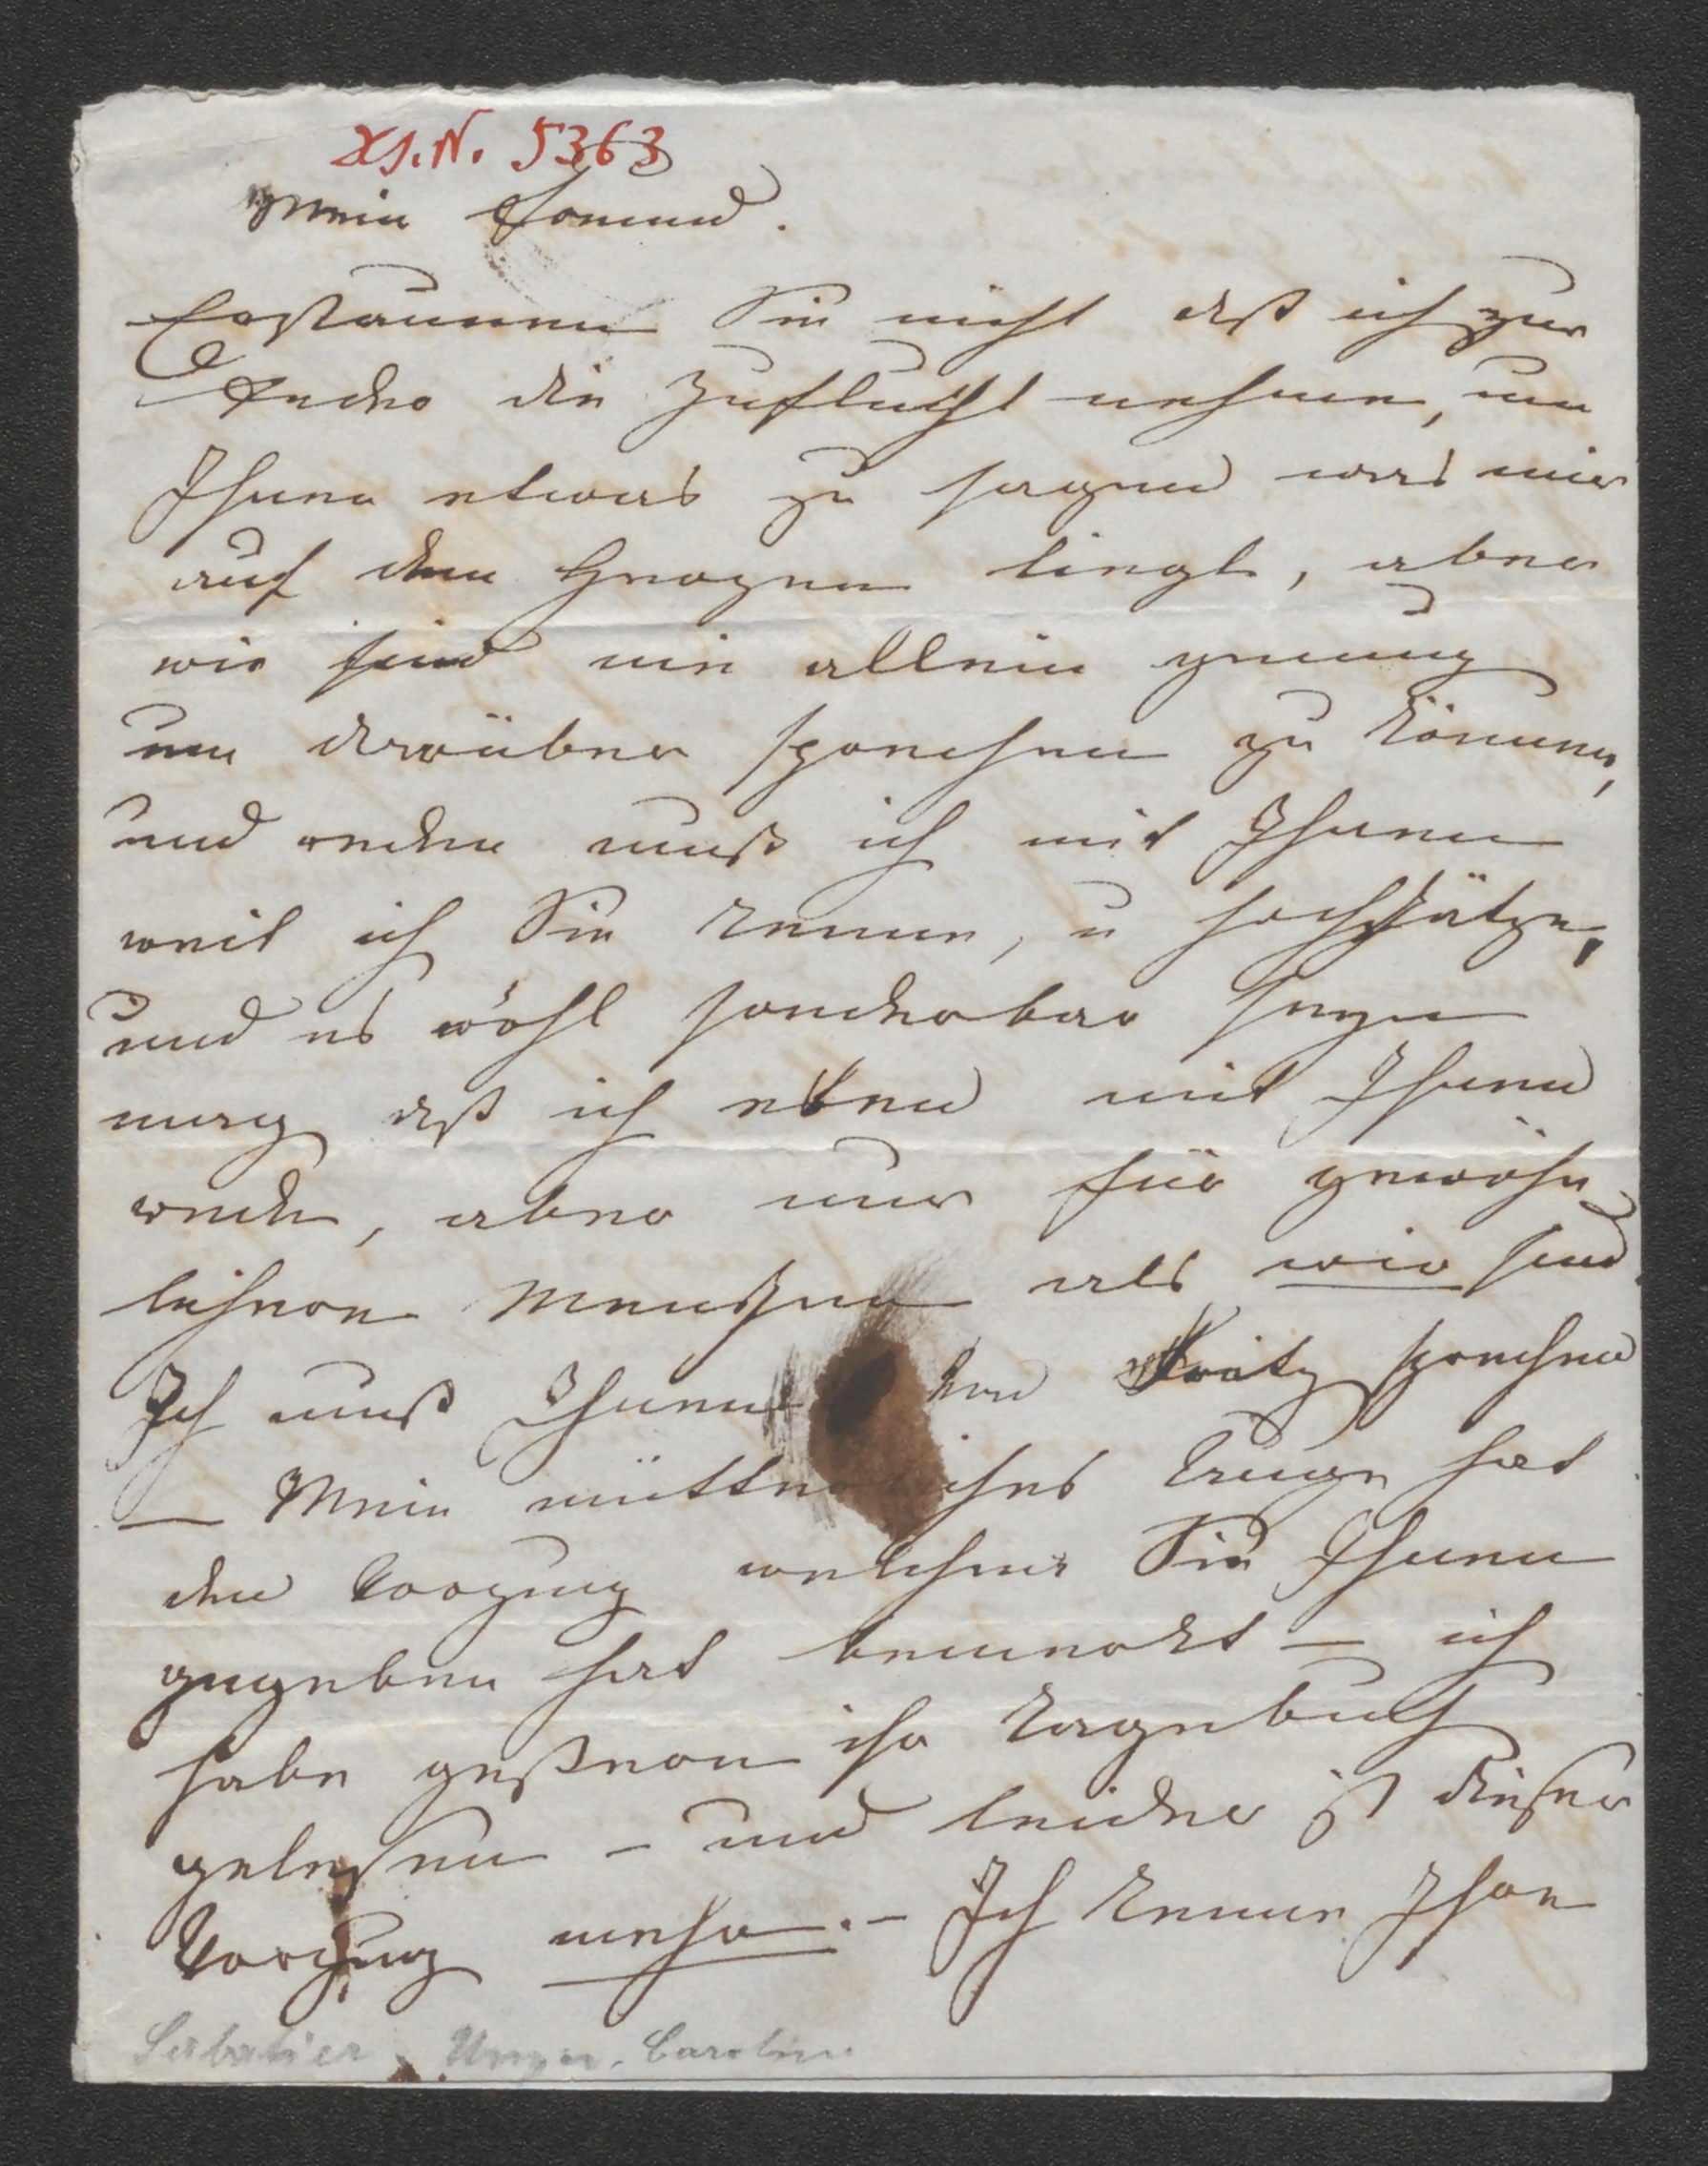 XS.N. 5363
Mein Freund.
Erstaunen Sie nicht daß ich zur
Feder die Zuflucht nehme, um
Ihnen etwas zu sagen was mir
auf dem Herzen liegt, aber
wir sind nie allein genug
um darüber sprechen zu können,
und reden muß ich mit Ihnen
weil ich Sie kenne, u hochschätze,
und es wohl sonderbar seyn
mag daß ich eben mit Ihnen
rede, aber nur für gewöhn
lichere Menschen als wir sind.
Ich muß Ihnen sprechen
— Mein mütterliches Auge hat
den Vorzug welchen Sie Ihnen
gegeben hat bemerkt – ich
habe gestern ihr Tagebuch
gelesen – und leider ist dieser
Vorzug mehr. – Ich kenne Ihre
Sabatier - Unger, Caroline